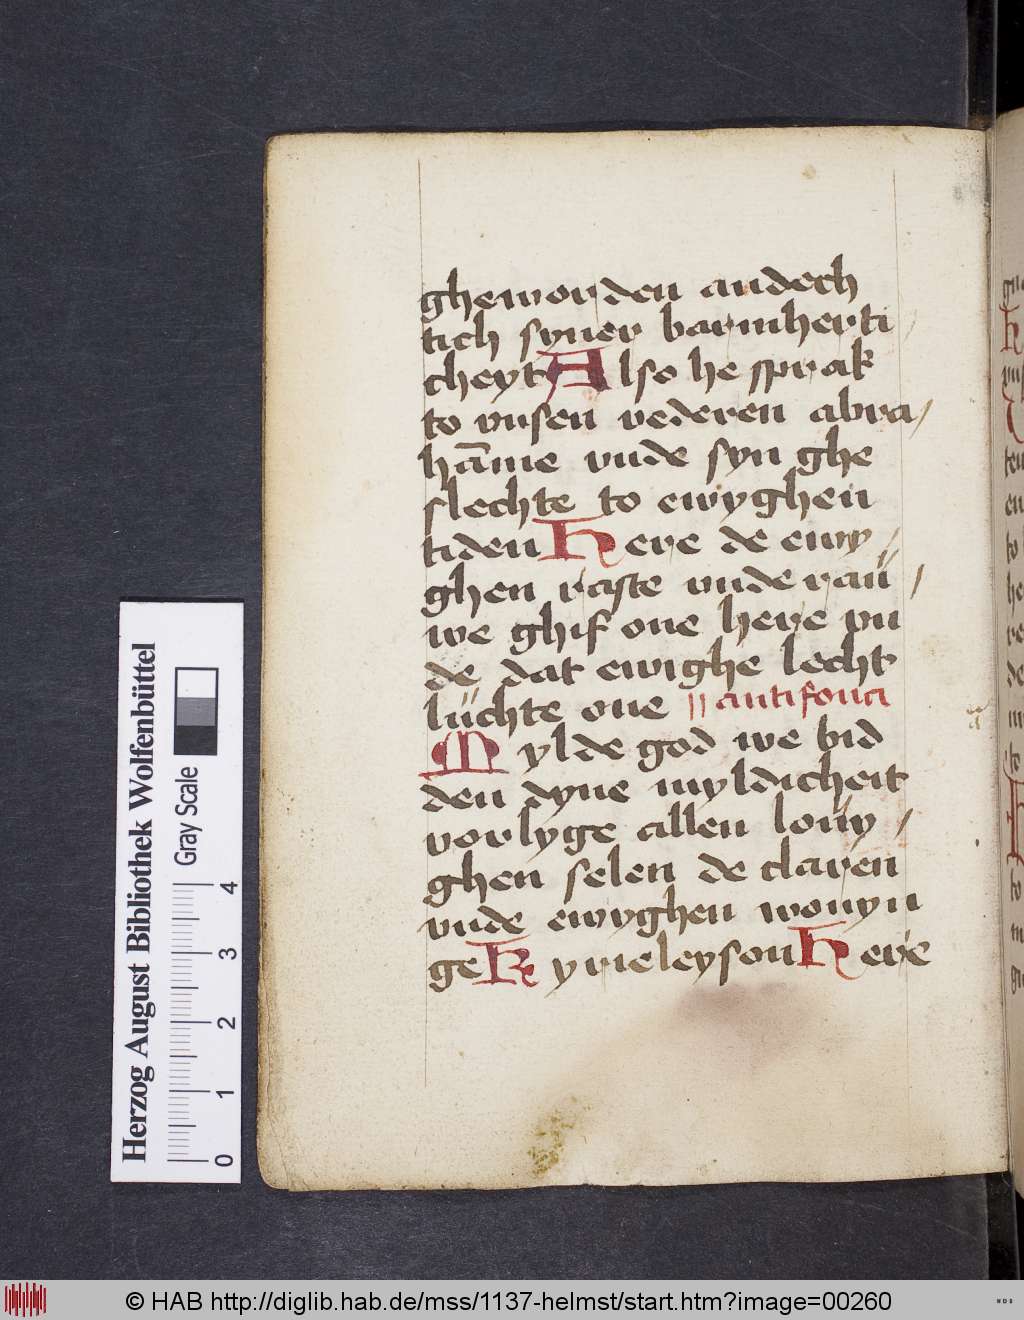 gheworden andech
tich syner barmherti
cheyt Also he sprak
to vnsen vederen abra/
hāme vnde syn ghe
slechte to ewyghen
tiden Here de ewy/
ghen raste vnde raü/
we ghif one here vn
de dat ewighe lecht
lüchte one || antifona
Mylde god we bid
den dyne myldicheit
vorlyge allen loüy/
ghen selen de claren
vnde ewyghen wonyn
ge Kyrieleyson Here
Herzog August Bibliothek Wolfenbüttel
Gray Scale
0 1 2 3 4
© HAB http://diglib.hab.de/mss/1137-helmst/start.htm?image=00260